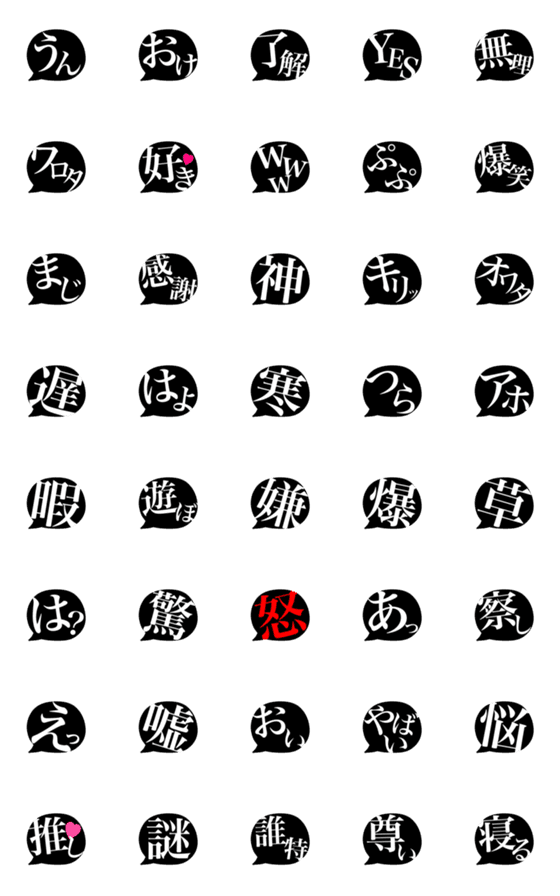 うん おけ 了解 YES 無理
ワロタ 好き www ぷぷ 爆笑
まじ 感謝 神 キリッ オワタ
遅 はよ 寒 つら アホ
暇 遊ぼ 嫌 爆 草
は? 驚 怒 あっ 察し
えっ 嘘 おい やばい 悩
推し 謎 誰特 尊い 寝る